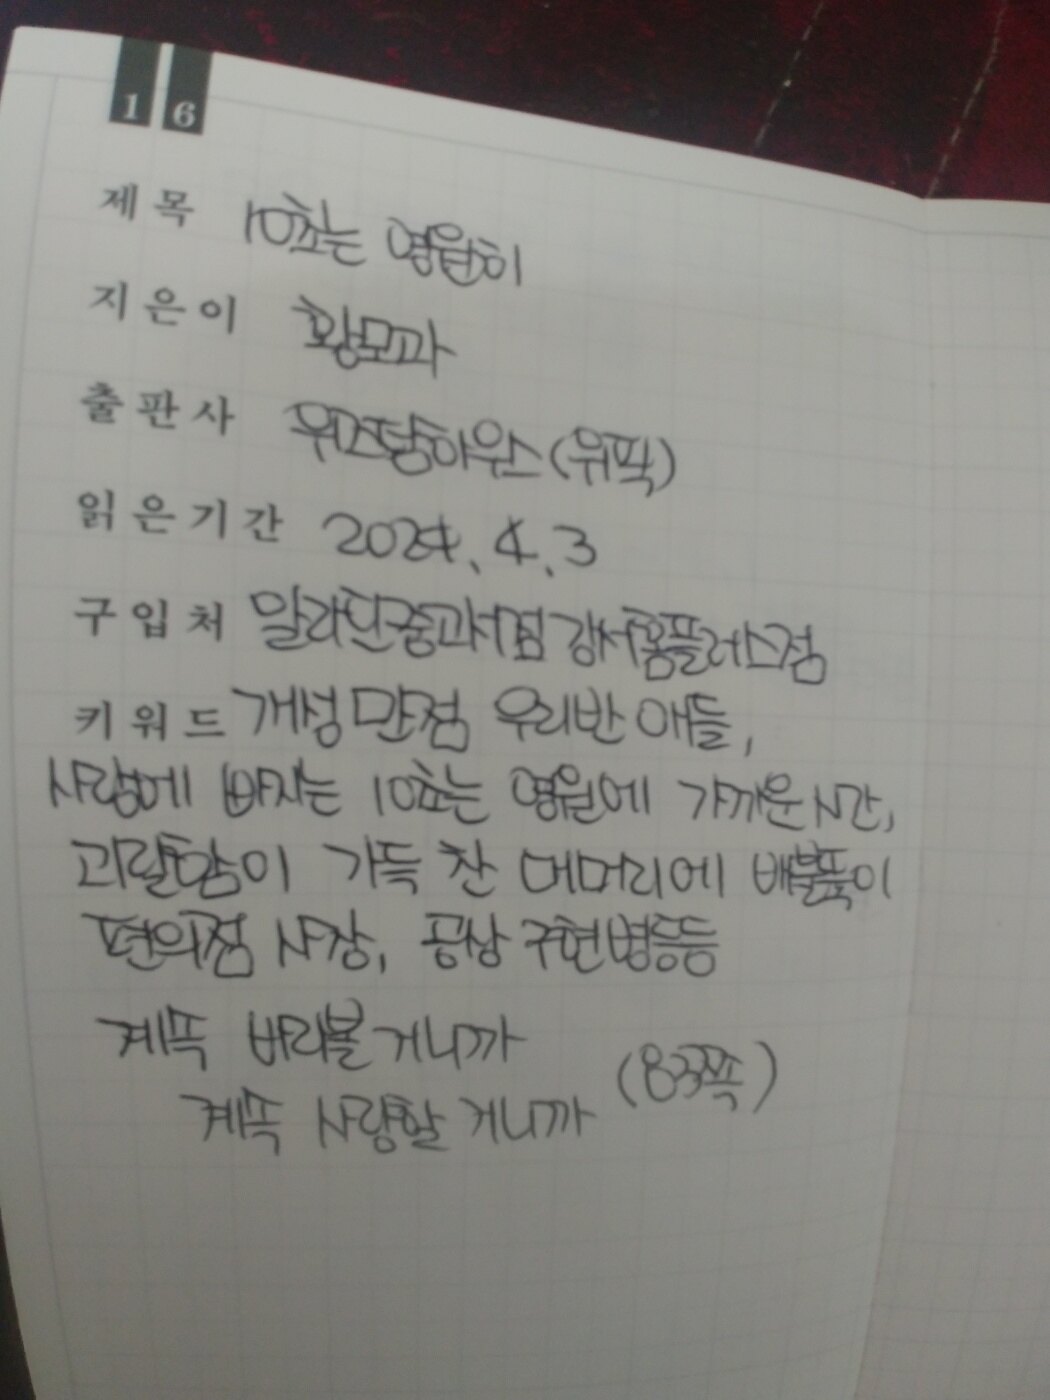 16
제목 10초는 영원히
지은이 황모과
출판사 위즈덤하우스(위픽)
읽은기간 2024.4.3
구입처 알라딘중고서점 강서홈플러스점
키워드 개성 만점 우리반 애들,
사랑에 빠지는 10초는 영원에 가까운 시간,
괴랄함이 가득 찬 대머리에 배불뚝이
편의점 사장, 공상 구현병 등등
계속 바라볼 거니까
계속 사랑할 거니까 (83쪽)